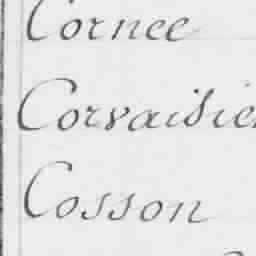 Cornee
Corvaisie
Cosson